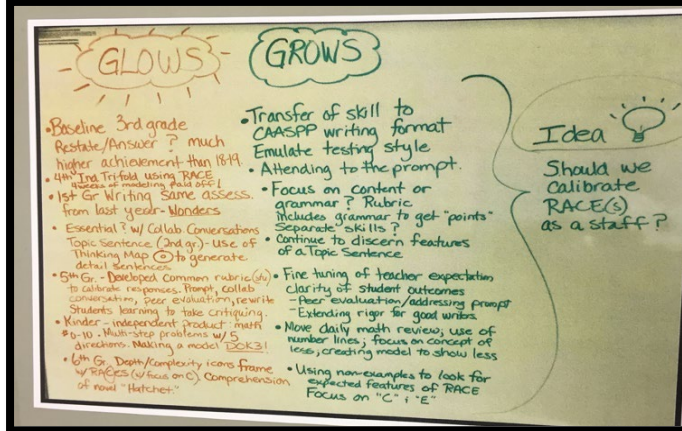 GLOWS
• Baseline 3rd grade
Restate/Answer ? much
higher achievement than 18-19.
• 4th Ind Trifold using RACE
4 weeks of modeling paid off!
• 1st Gr Writing Same assess.
from last year - Wonders
• Essential ? w/ Collab Conversations
Topic Sentence (2nd gr.) - Use of
Thinking Map to generate
detail sentences
• 5th Gr. - Developed common rubric
to calibrate responses. Prompt, collab
conversation, peer evaluation, rewrite
Students learning to take critiquing.
• Kinder - independent product - math
#0-10. Multi-step problems w/ 5
directions. Making a model DOK3!
• 6th Gr. Depth/Complexity icons frame
w/ RACES (w/ focus on C) Comprehension
of novel "Hatchet."
GROWS
• Transfer of skill to
CAASPP writing format
Emulate testing style
• Attending to the prompt.
• Focus on content or
grammar ? Rubric
includes grammar to get "points"
Separate skills ?
• Continue to discern features
of a Topic Sentence
• Fine tuning of teacher expectation
clarity of student outcomes
- Peer evaluation/addressing prompt
- Extending rigor for good writers
• Move daily math review; use of
number lines; focus on concept of
less, creating model to show less
• Using non-examples to look for
expected features of RACE
Focus on "C" ; "E"
Idea
Should we
calibrate
RACE(s)
as a staff?